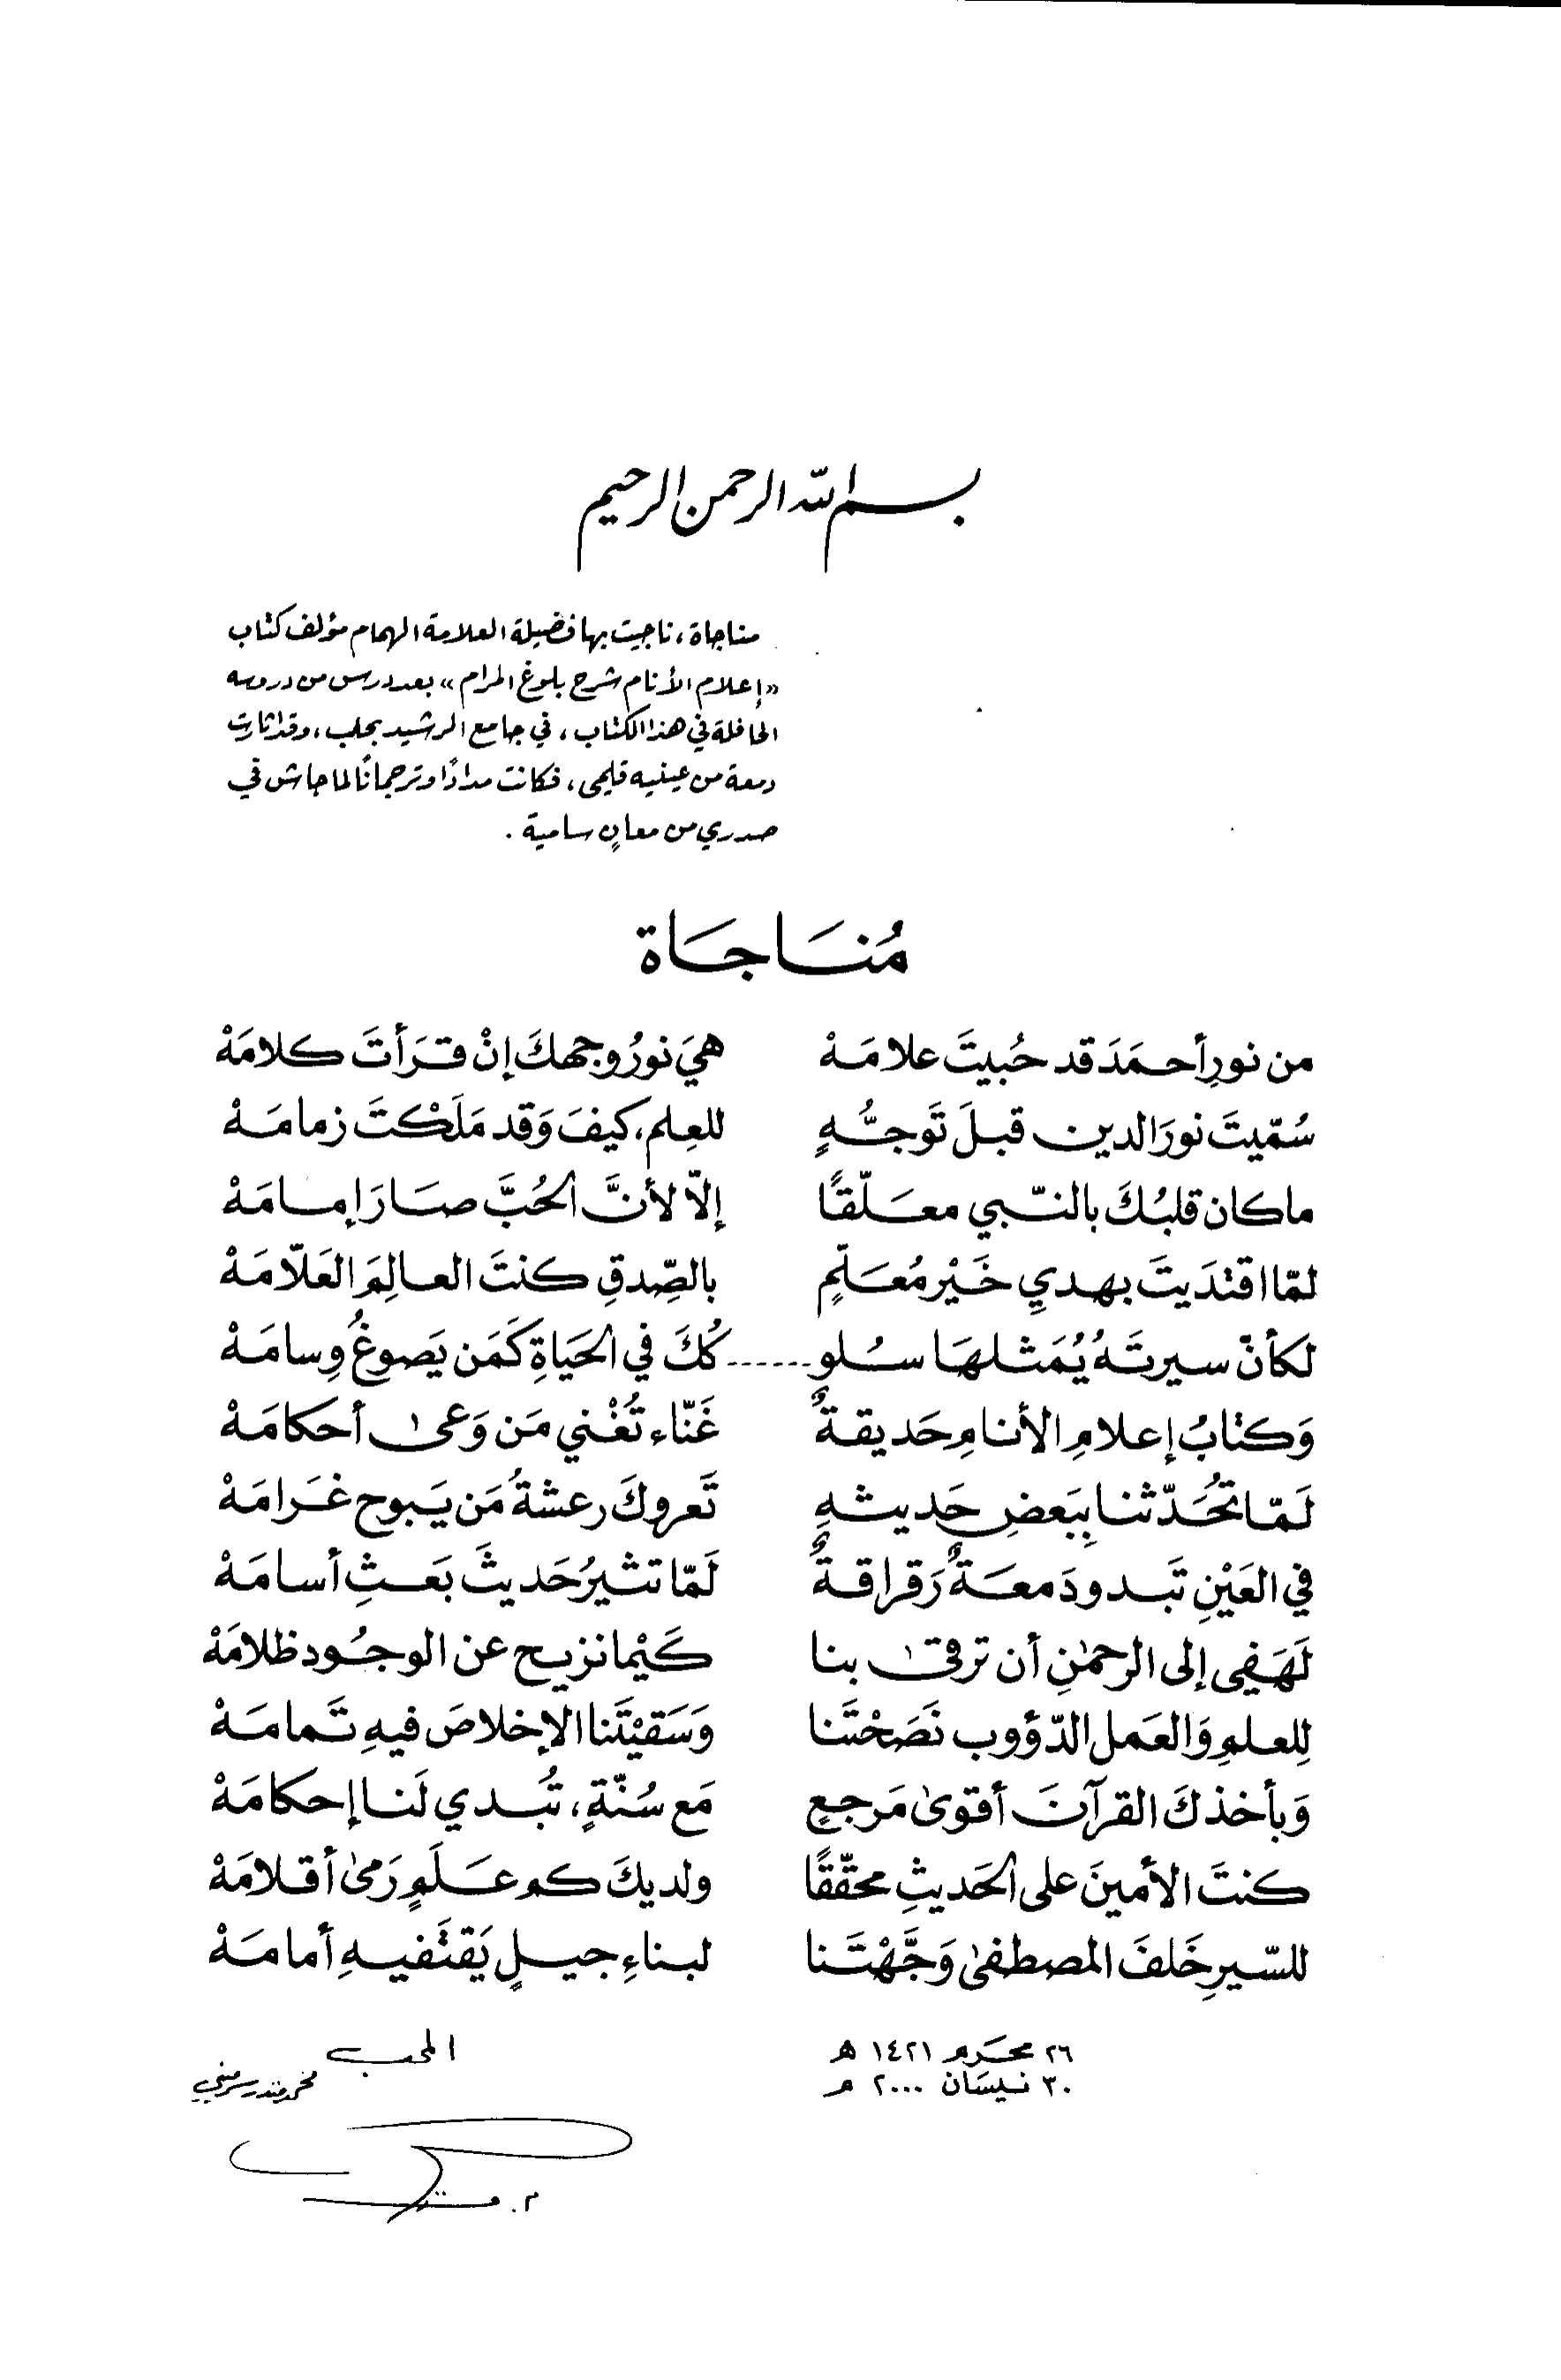 بسم الله الرحمن الرحيم
مناجاة، ناجيت بها فضيلة العلامة الهمام مؤلف كتاب
«إعلام الأنام شرح بلوغ المرام» بعد درس من دروسه
الحافلة في هذا الكتاب، في جامع الرشيد بحلب، وقد أثارت
دمعة من عينيه قلمي، فكانت مدادًا وترجمانًا لما جاش في
صدري من معانٍ سامية.
مُنَاجَاة
من نورِ أحمَدَ قد حُبيتَ علامَهْ هيَ نورُ وجهكَ إنْ قرَأتَ كلامَهْ
سُمّيتَ نورَ الدين قبلَ تَوجُّهٍ للعِلم، كيفَ وَقد مَلَكْتَ زمامَهْ
ما كان قلبُكَ بالنّبي معَلّقًا إلاّ لأنَّ الحُبَّ صَارَ إمامَهْ
لمّا اقتدَيتَ بهديِ خَيْر مُعَلّمٍ بالصِّدقِ كنتَ العالِمَ العَلاّمَهْ
لكأنّ سيرتَهُ يُمَثلهَا سُلو......كُكَ في الحَيَاةِ كَمَن يَصوغُ وِسامَهْ
وَكتابُ إعلامِ الأنامِ حَديقةٌ غَنّاء تُغْني مَن وَعى أحكامَهْ
لَمّا تُحَدّثنا بِبَعضِ حَديثهِ تَعروكَ رعشةُ مَن يَبوح غَرامَهْ
في العَيْنِ تَبدو دَمعَةٌ رَقراقةٌ لَمّا تثيرُ حَديثَ بَعثِ أسامَهْ
لَهَفِي إلى الرحمٰنِ أن ترقىٰ بنا كَيْما نزيح عن الوجُود ظلامَهْ
لِلعلمِ وَالعَمل الدّؤوب نَصَحْتَنا وَسَقيْتَنا الإخلاصَ فيهِ تَمامَهْ
وَبأخذكَ القرآنَ أقوىٰ مَرجعٍ مَع سُنّةٍ، تُبدي لَنا إحكامَهْ
كنتَ الأمينَ على الحَديثِ محقّقًا ولديكَ كم عَلَمٍ رَمىٰ أقلامَهْ
للسّيرِ خَلفَ المصطفىٰ وَجَّهْتَنا لبناءِ جيلٍ يَقتَفيهِ أمامَهْ
٢٦ محَرم ١٤٢١ هـ المحب
٣٠ نيسَان ٢٠٠٠ م محمد منذر سرميني